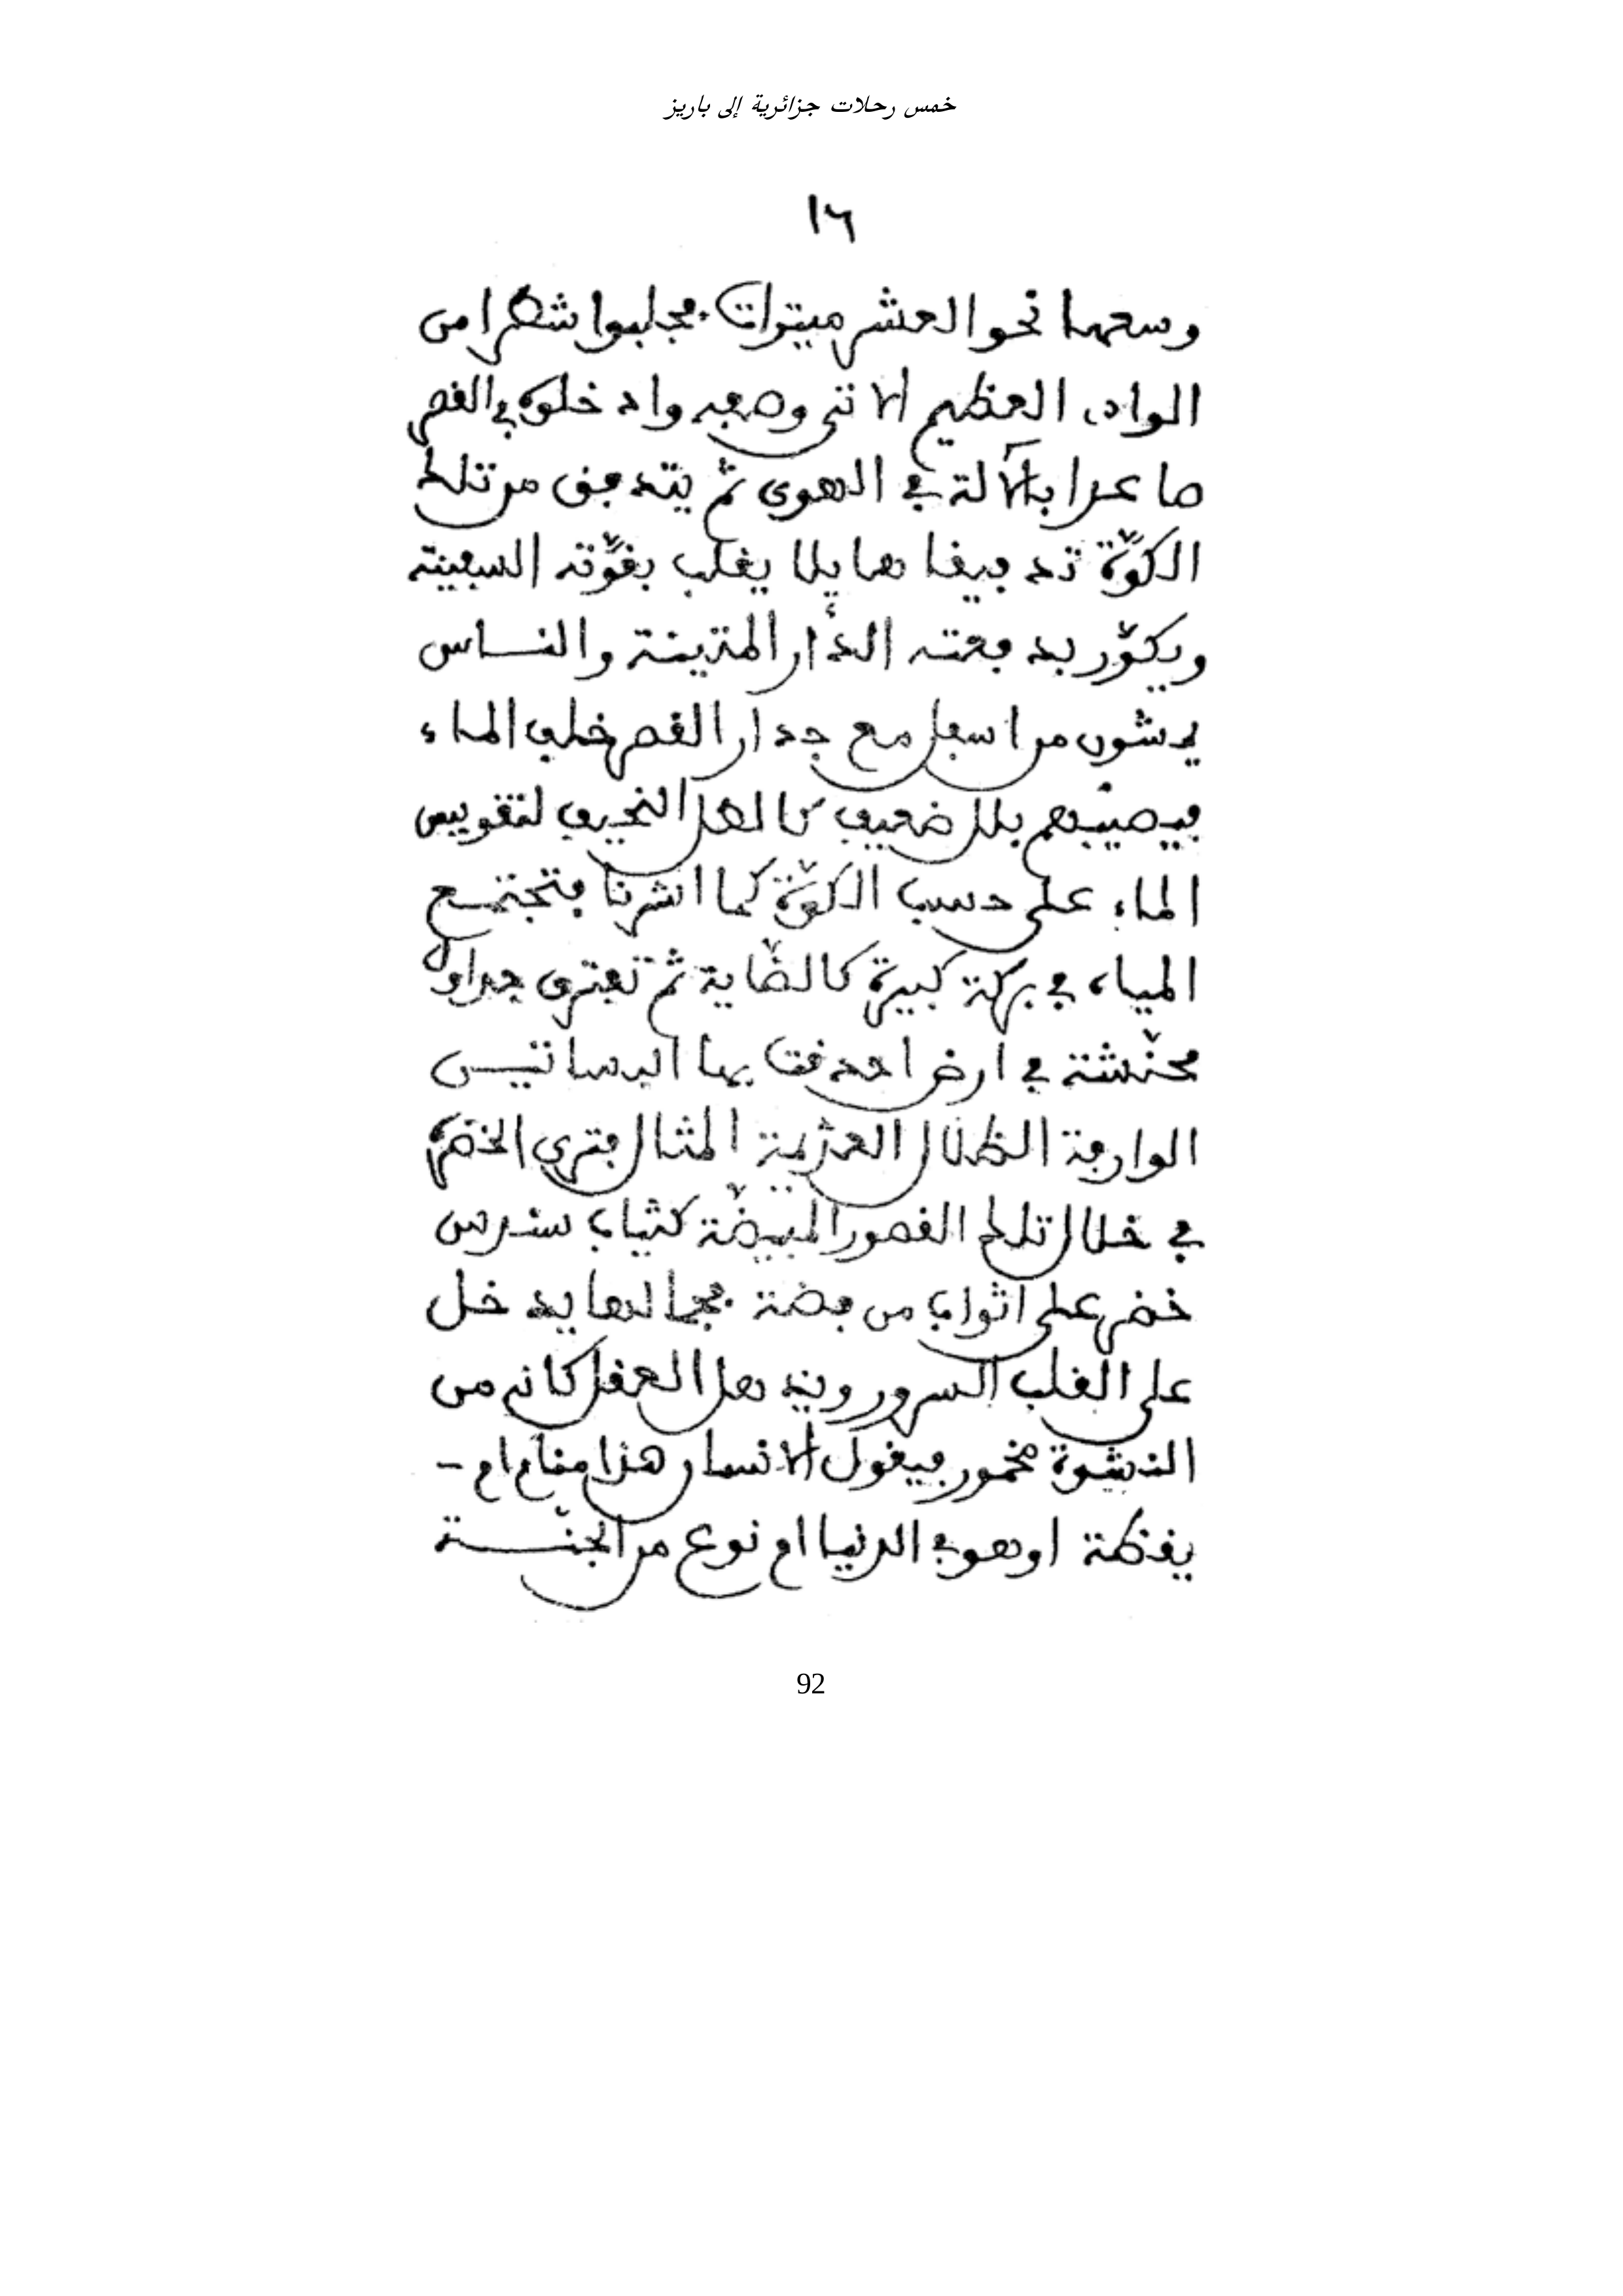 خمس رحلات جزائرية إلى باريز
١٦
وسعها نحو العشر ميترات فجلبوا شطرا من
الوادي العظيم الاتي وصفه وادخلوه في القصر
صاعدا بالآلة في الهوى ثم يتدفق من تلك
الكوّة تدفيقا هايلا يغلب بقوّته السفينة
ويكوّر بدفعته الدّار المتينة والناس
يمشون من اسفل مع جدار القصر خلف الماء
فيصيبهم بلل ضعيف كالطل الخريف لتقويس
الماء على حسب الكوّة كما اشرنا فتجتمع
المياه في بركة كبيرة كالضّاية ثم تفترق جداول
محنّشة في ارض احدقت بها البساتيـن
الوارفة الظلال العزيمة المثال فترى الخضرة
في خلال تلك القصور المبيضّة كثياب سندس
خضر على اثواب من فضة فجمالها يدخل
على القلب السرور ويذهل العقل كانه من
النشوة مخمور فيقول الانسان هذا منام ام -
يقظة او هو في الدنيا ام نوع من الجنّـة
92